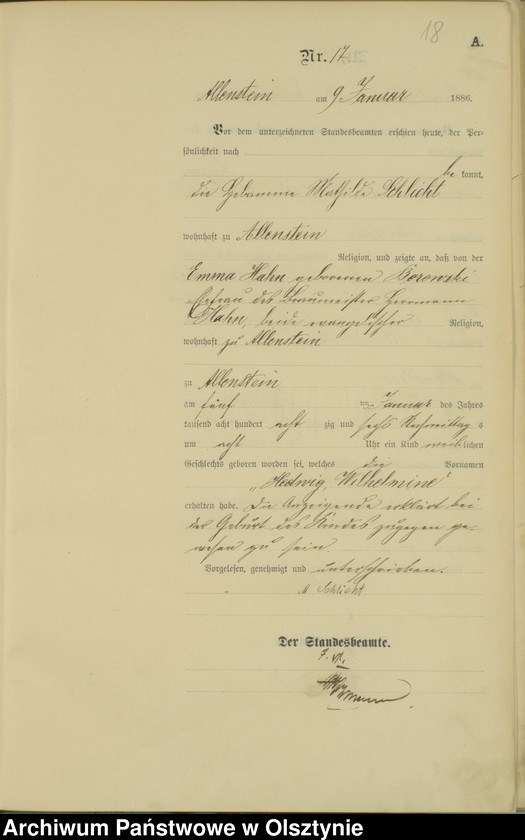 18
A.
Nr. 17
Allenstein am 9 Januar 1886.
Vor dem unterzeichneten Standesbeamten erschien heute, der Per-
sönlichkeit nach
be kannt,
die Hebamme Mathilde Schlicht
wohnhaft zu Allenstein
Religion, und zeigte an, daß von der
Emma Hahn geborenen Borowski
Ehefrau des Braumeister Herrmann
Hahn, beide evangelischer Religion,
wohnhaft zu Allenstein
zu Allenstein
am fünf ten Januar des Jahres
tausend acht hundert acht zig und sechs Nachmittag s
um acht Uhr ein Kind weib lichen
Geschlechts geboren worden sei, welches die Vornamen
„Hedwig, Wilhelmine"
erhalten habe. Die Anzeigende erklärt bei
der Geburt des Kindes zugegen ge-
wesen zu sein.
Vorgelesen, genehmigt und unterschrieben.
M Schlicht
Der Standesbeamte.
Archiwum Państwowe w Olsztynie